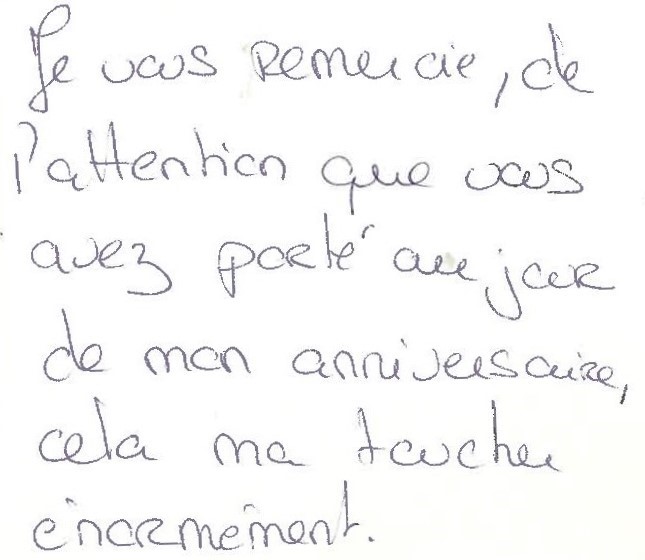 Je vous remercie, de
l'attention que vous
avez porté au jour
de mon anniversaire,
cela ma toucher
énormément.